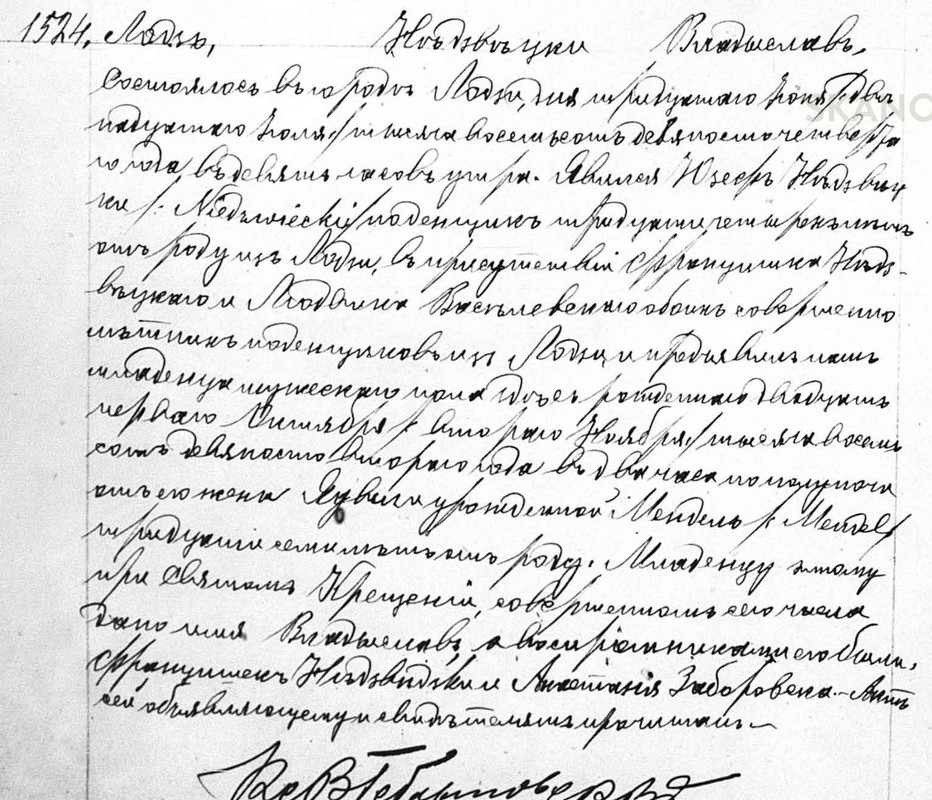 1524, Лодзь, Нѣдзвѣцки Владыславъ.
Состоялось въ городѣ Лодзи, дня тридцатаго Іюня / двѣ
надцатаго Іюля / тысяча восемьсотъ девяносто четверта
го года въ девять часовъ утра. Явился Юзефъ Нѣдзвѣц
ки /: Niedzwiecki / поденщикъ тридцати четырехъ лѣтъ
отъ роду изъ Лодзи, въ присутствіи Францишка Нѣдз-
вѣцкаго и Людвика Василевскаго обоихъ совершенно
лѣтнихъ поденщиковъ изъ Лодзи и предъявилъ намъ
младенца мужескаго пола здѣсь рожденнаго двадцать
перваго Октября / втораго Ноября / тысяча восемь
сотъ девяносто втораго года въ два часа по полуночи
отъ его жены урожденной Мендель / Mendel /
тридцати семи лѣтъ отъ роду. Младенцу этому
при Святомъ Крещеніи, совершенномъ сего числа
дано имя Владыславъ, а воспріемниками его были,
Францишекъ Нѣдзвѣдски и Анастазія Заборовска. - Актъ
сей объявляющему и свидѣтелямъ прочитанъ. -